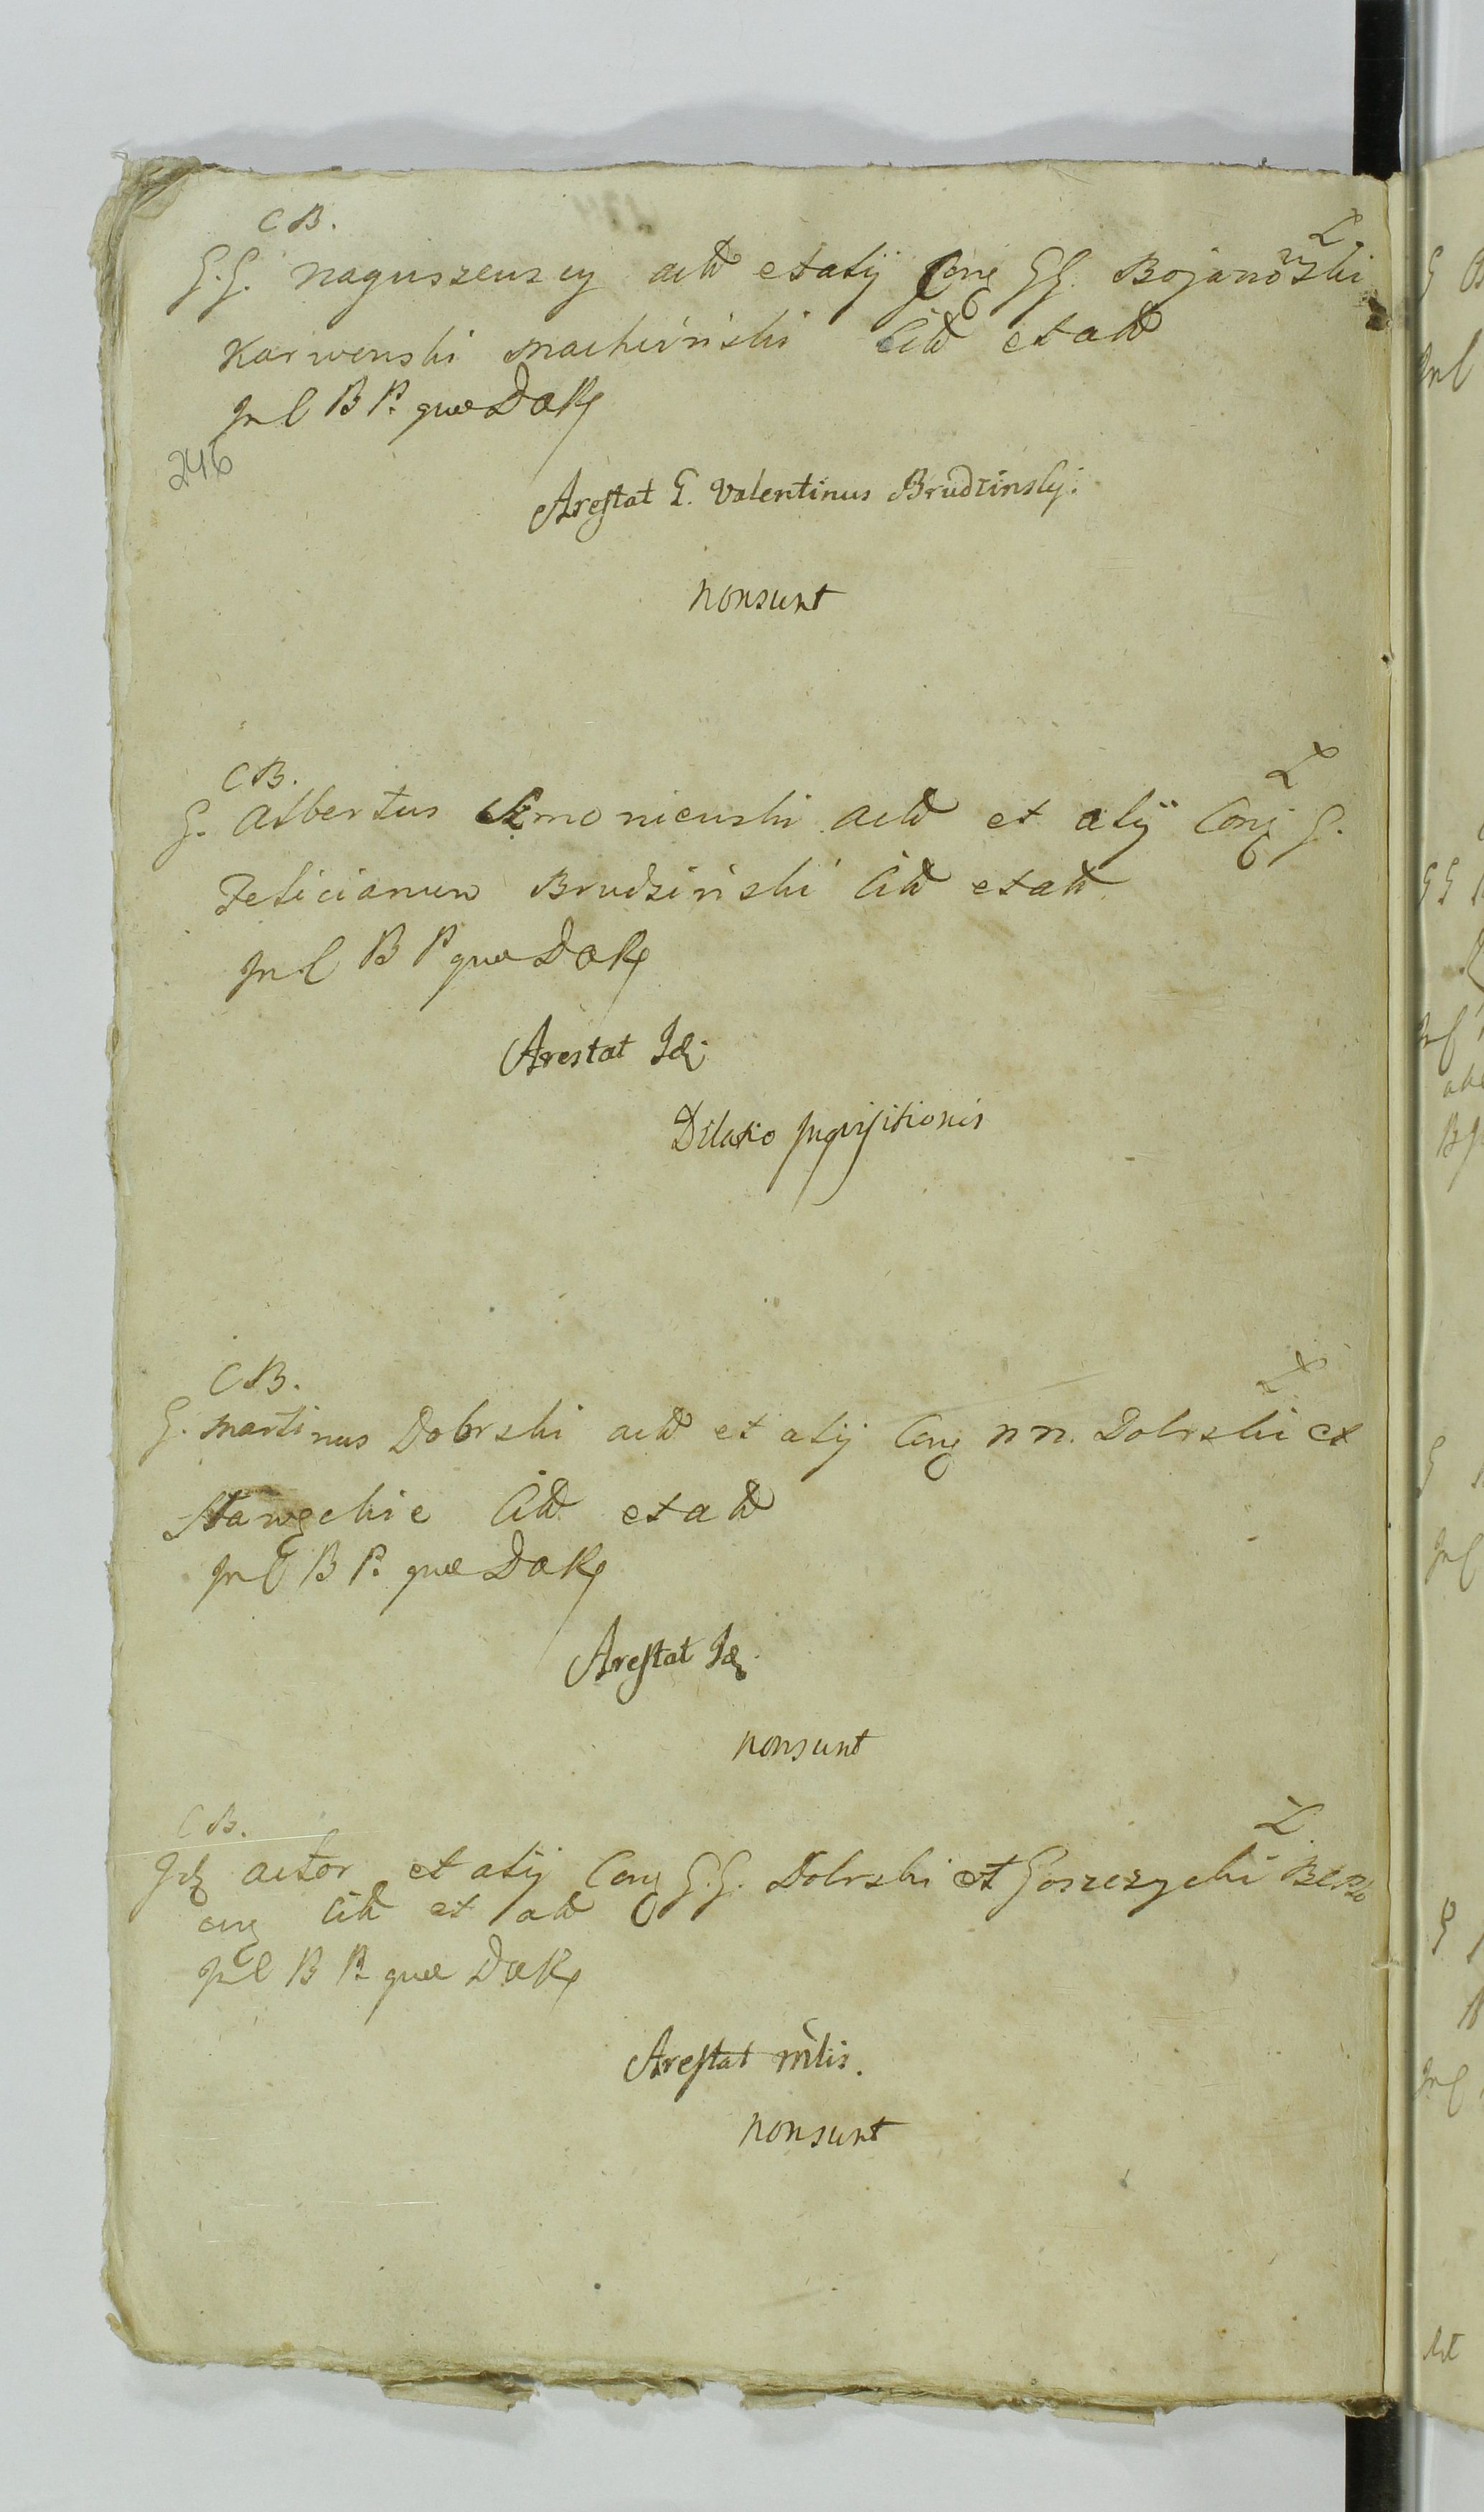 C B. L
G. G. Naguszeuscy actt et alij Conq GG. Bojanowski
Karwenski Machcinski Citt et att
In C B P. quæ DoRq
246
Arestat G. Valentinus Brudzinsky.
nonsunt
C B. L
G. Albertus actt et alij Conq G.
Felicianum Brudzinski Citt et att
In C B P quæ DoRq
Arestat Id.
Dilatio Inqvisitionis
C B. L
G. Martinus Dobrski actt et alij Conq N N. Dobrski et
Citt et att
In C B P. quæ DoRq
Arestat Idq.
nonsunt
C B. L
Idq actor et alij Conq G. G. Dobrski et Goszczycki
Citt et att
In C B P. quæ DoRq
Arestat mlis.
nonsunt